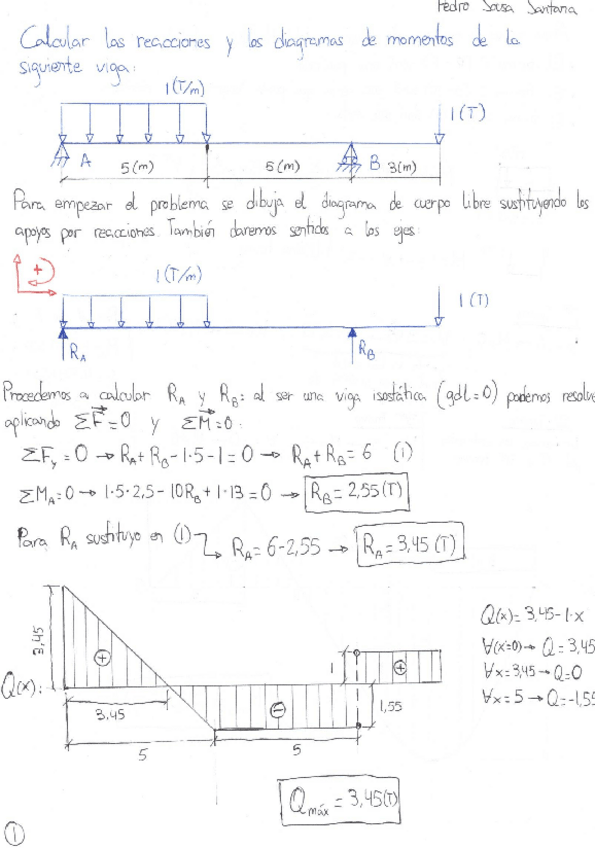 Pedro Sosa Santana
Calcular las reacciones y los diagramas de momentos de la
siguiente viga:
1(T/m)
1(T)
A
B
5(m)
5(m)
3(m)
Para empezar el problema se dibuja el diagrama de cuerpo libre sustituyendo los
apoyos por reacciones. También daremos sentidos a los ejes:
+
1(T/m)
1(T)
R_A
R_B
Procedemos a calcular R_A y R_B: al ser una viga isostática (gdl=0) podemos resolve
aplicando ΣF=0 y ΣM=0:
ΣF_y=0 → R_A+R_B-1·5-1=0 → R_A+R_B=6 (1)
ΣM_A=0 → 1·5·2,5-10R_B+1·13=0 → R_B=2,55(T)
Para R_A sustituyo en (1) → R_A=6-2,55 → R_A=3,45(T)
Q(x)=3,45-1·x
∀(x=0) → Q=3,45
∀x=3,45 → Q=0
∀x=5 → Q=-1,55
Q(x):
3,45
+
3,45
5
-
5
1
+
1,55
Q_máx=3,45(T)
1